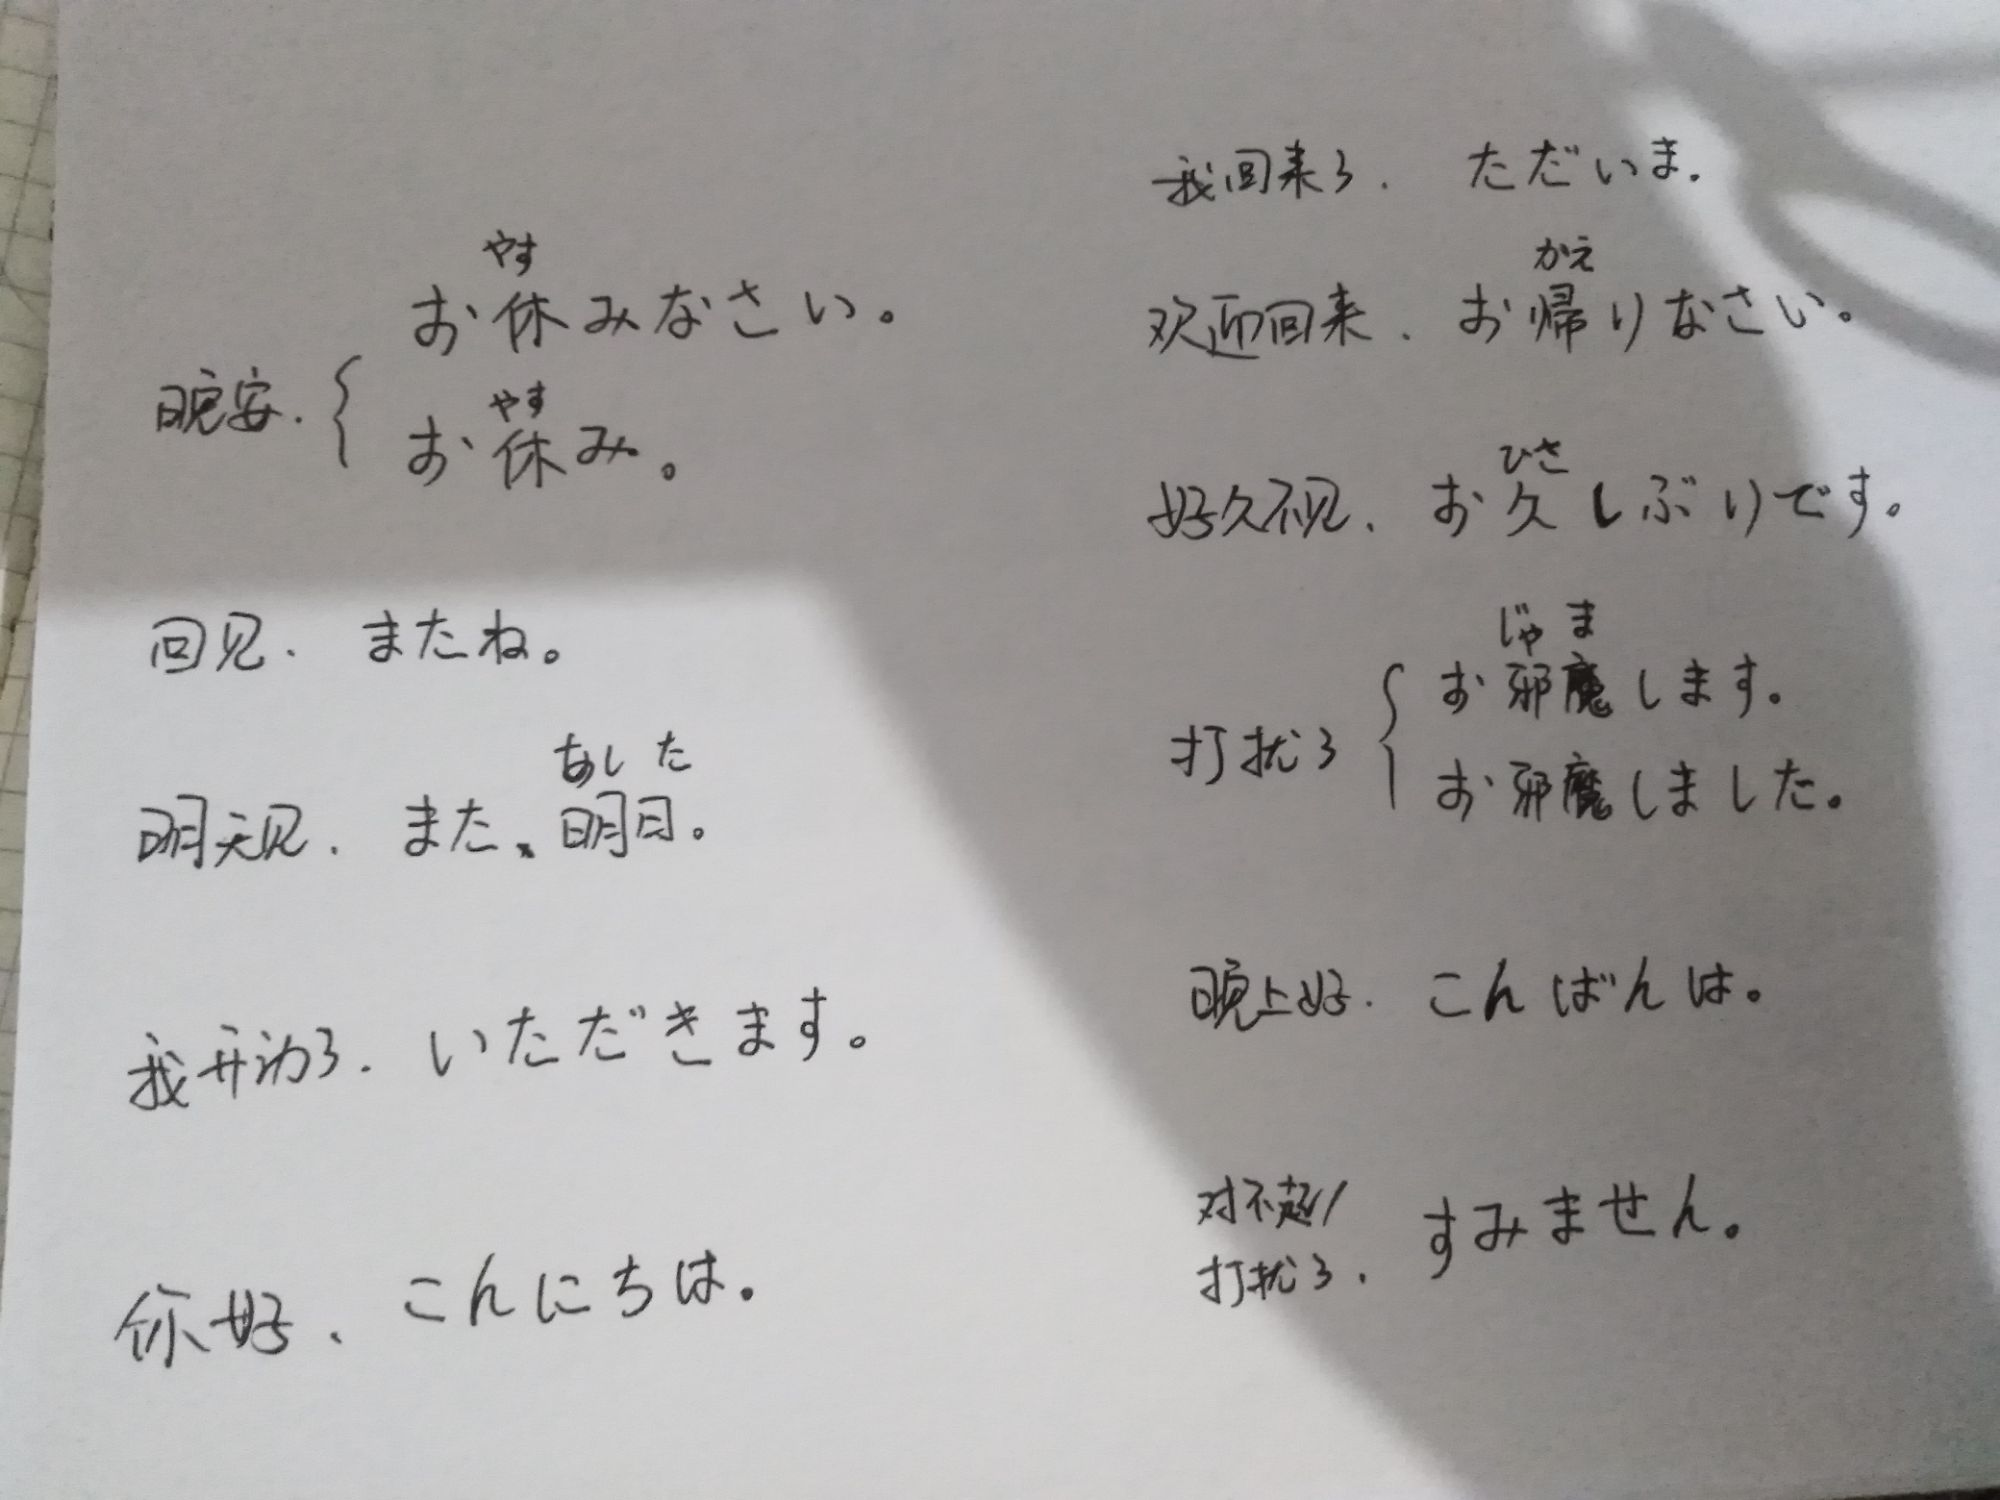 やす
お休みなさい。
晚安.
やす
お休み。
回见. またね。
あした
明天见. また、明日。
我开动了. いただきます。
你好. こんにちは。
我回来了. ただいま.
かえ
欢迎回来. お帰りなさい。
ひさ
好久不见. お久しぶりです。
じゃま
お邪魔します。
打扰了
お邪魔しました。
晚上好. こんばんは。
对不起/
打扰了. すみません。